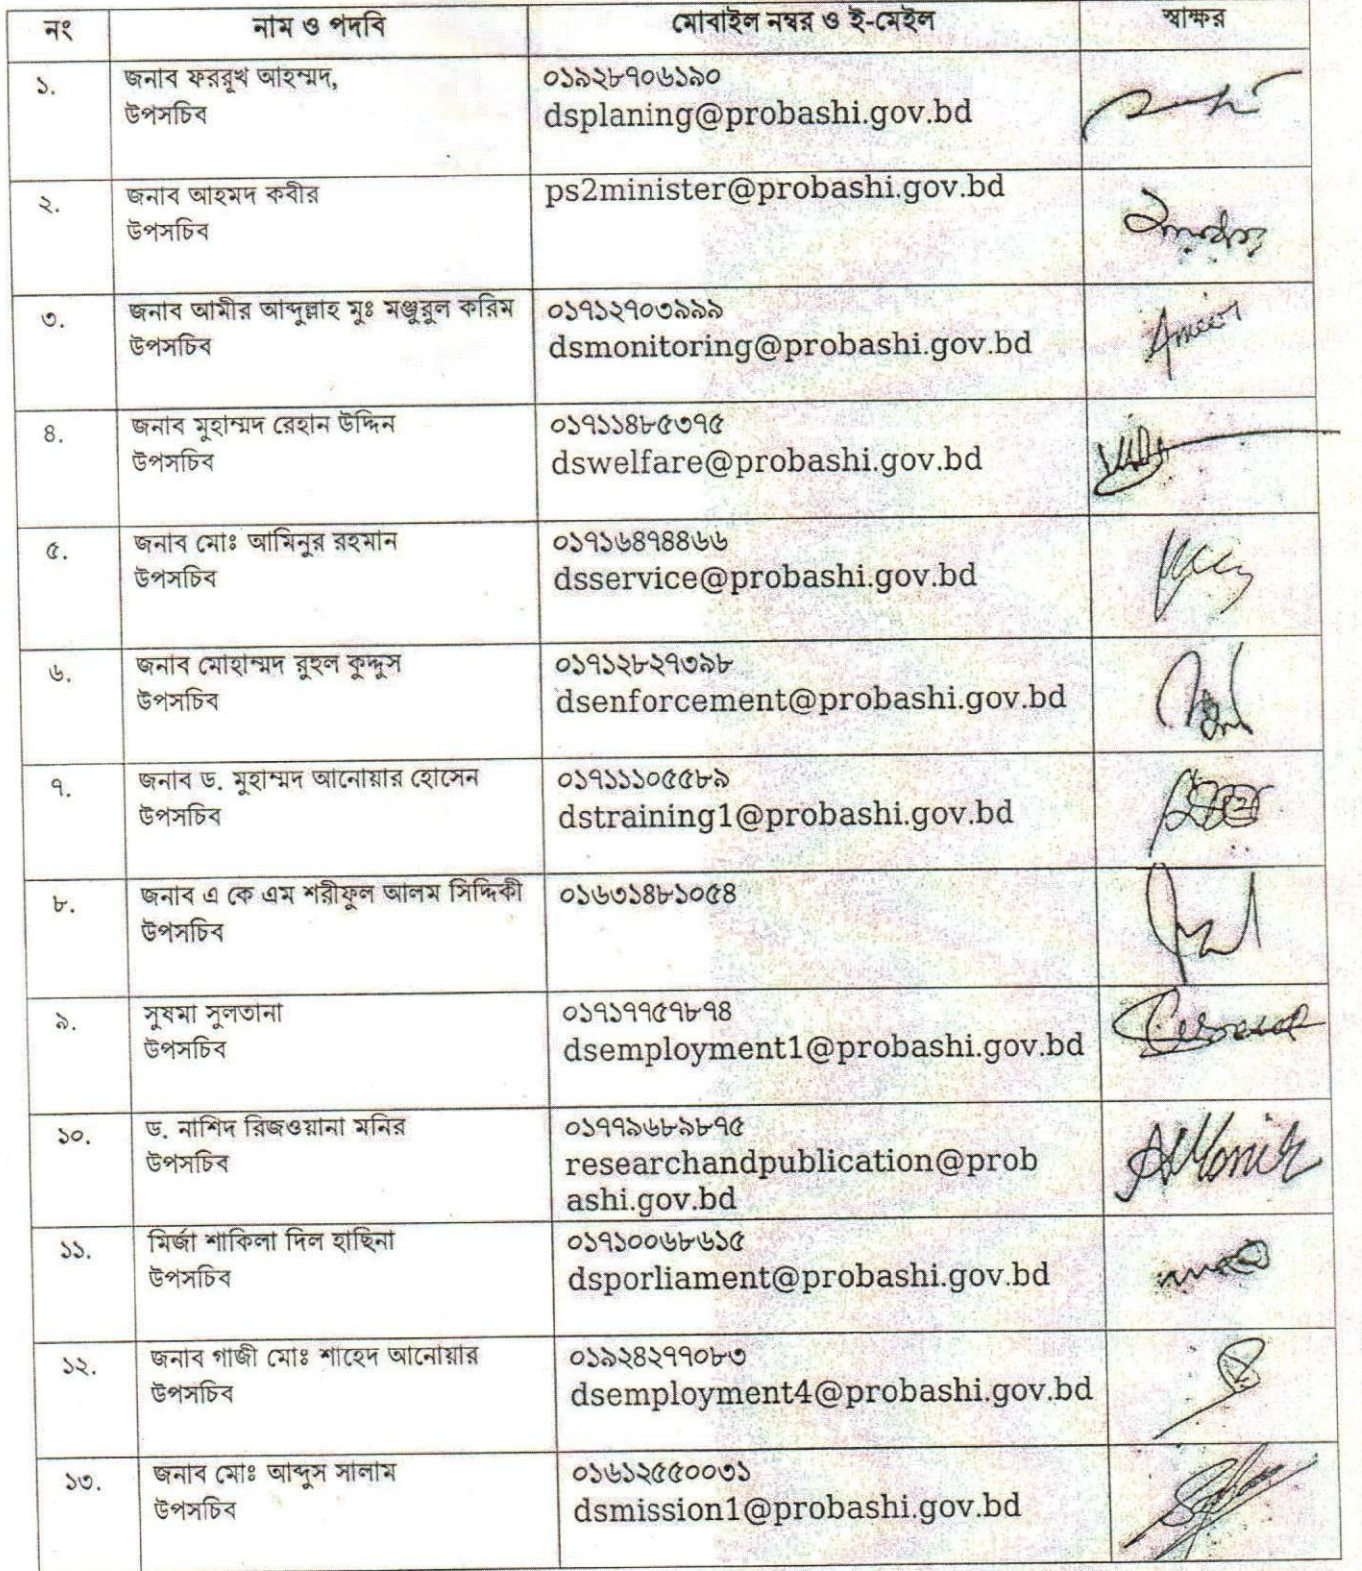 নং নাম ও পদবি মোবাইল নম্বর ও ই-মেইল স্বাক্ষর
১. জনাব ফররুখ আহম্মদ, ০১৯২৮৭০৬১৯০
উপসচিব dsplaning@probashi.gov.bd
২. জনাব আহমদ কবীর ps2minister@probashi.gov.bd
উপসচিব
৩. জনাব আমীর আব্দুল্লাহ মুঃ মঞ্জুরুল করিম ০১৭১২৭০৩৯৯৯
উপসচিব dsmonitoring@probashi.gov.bd
Ameer
৪. জনাব মুহাম্মদ রেহান উদ্দিন ০১৭১১৪৮৫৩৭৫
উপসচিব dswelfare@probashi.gov.bd
৫. জনাব মোঃ আমিনুর রহমান ০১৭১৬৪৭৪৪৬৬
উপসচিব dsservice@probashi.gov.bd
৬. জনাব মোহাম্মদ রুহুল কুদ্দুস ০১৭১২৮২৭৩৯৮
উপসচিব dsenforcement@probashi.gov.bd
৭. জনাব ড. মুহাম্মদ আনোয়ার হোসেন ০১৭১১১০৫৫৮৯
উপসচিব dstraining1@probashi.gov.bd
৮. জনাব এ কে এম শরীফুল আলম সিদ্দিকী ০১৬৩১৪৮১০৫৪
উপসচিব
৯. সুষমা সুলতানা ০১৭১৭৭৫৭৮৭৪
উপসচিব dsemployment1@probashi.gov.bd
১০. ড. নাশিদ রিজওয়ানা মনির ০১৭৭৯৬৮৯৮৭৫
উপসচিব researchandpublication@prob
ashi.gov.bd
১১. মির্জা শাকিলা দিল হাছিনা ০১৭১০০৬৮৬১৫
উপসচিব dsporliament@probashi.gov.bd
১২. জনাব গাজী মোঃ শাহেদ আনোয়ার ০১৯২৪২৭৭০৮৩
উপসচিব dsemployment4@probashi.gov.bd
১৩. জনাব মোঃ আব্দুস সালাম ০১৬১২৫৫০০৩১
উপসচিব dsmission1@probashi.gov.bd